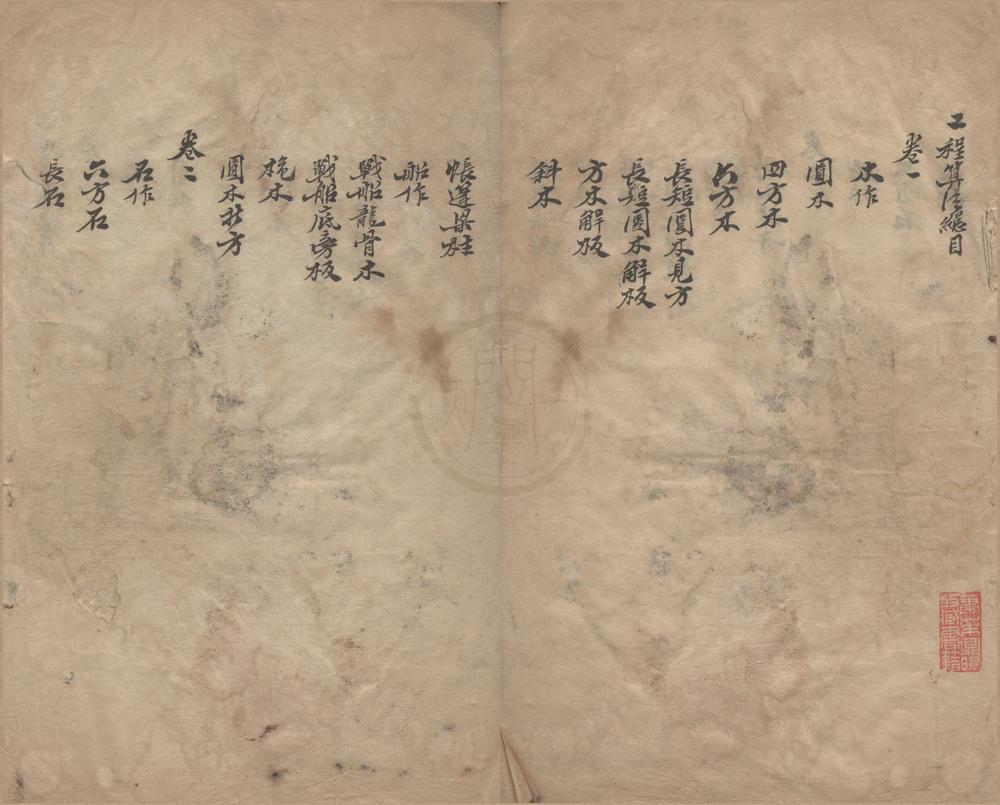 工程算法總目
卷一
木作
圓木
四方木
六方木
長短圓木見方
長短圓木解板
方木解板
斜木
帳蓬梁柱
船作
戰船龍骨木
戰船底旁板
桅木
圓木折方
卷二
石作
六方石
長石